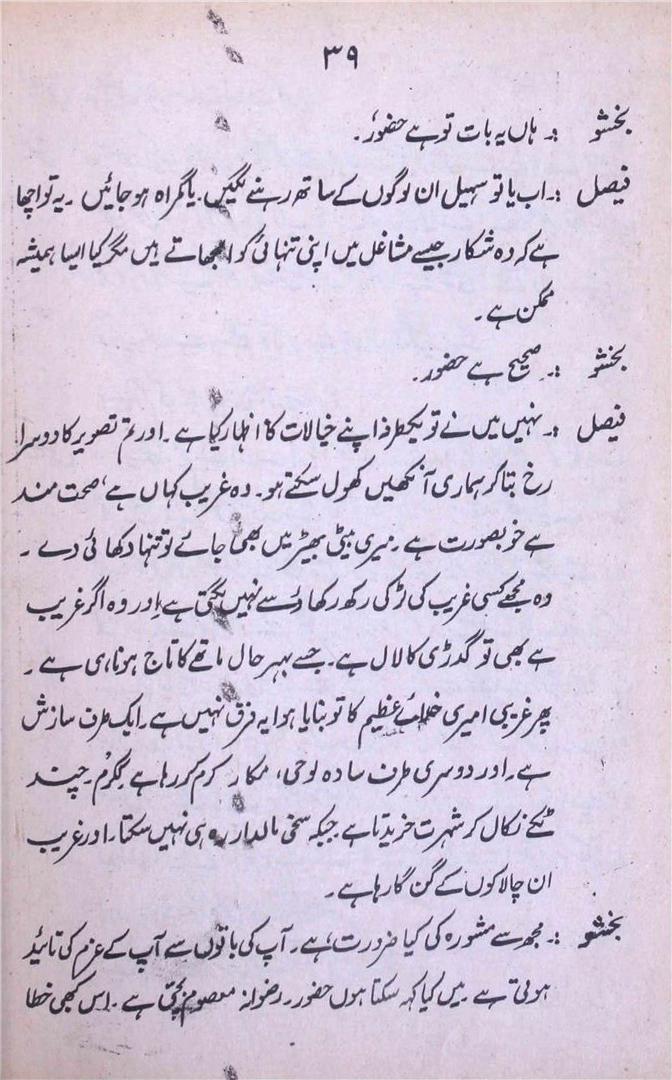 ۳۹
بخشو :۔ ہاں یہ بات تو ہے حضور۔
فیصل :۔ اب یا تو سہیل ان لوگوں کے ساتھ رہنے لگیں۔ یا گمراہ ہو جائیں ۔ یہ تو اچھا
ہے کہ وہ شکار جیسے مشاغل میں اپنی تنہائی کو الجھاتے ہیں مگر کیا ایسا ہمیشہ
ممکن ہے ۔
بخشو :۔ صحیح ہے حضور۔
فیصل :۔ نہیں میں نے تو یکطرفہ اپنے خیالات کا اظہار کیا ہے ۔ اور تم تصویر کا دوسرا
رخ بتا کر ہماری آنکھیں کھول سکتے ہو۔ وہ غریب کہاں ہے، صحت مند
ہے خوبصورت ہے ۔ میری بیٹی بھیڑ میں بھی جائے تو تنہا دکھائی دے ۔
وہ مجھے کسی غریب کی لڑکی رکھ رکھاؤ سے نہیں لگتی ہے اور وہ اگر غریب
ہے بھی تو گدڑی کا لال ہے۔ جسے بہر حال ماتھے کا تاج ہونا ہی ہے ۔
پھر غریبی امیری خدائے عظیم کا تو بنایا ہوا یہ فرق نہیں ہے ۔ ایک طرف سازش
ہے۔ اور دوسری طرف سادہ لوحی، مکار کرم کر رہا ہے چند
ٹکے نکال کر شہرت خریدتا ہے جبکہ سخی مالدار رہ ہی نہیں سکتا۔ اور غریب
ان چالاکوں کے گن گا رہا ہے ۔
بخشو :۔ مجھ سے مشورہ کی کیا ضرورت ہے۔ آپ کی باتوں سے آپ کے عزم کی تائید
ہوتی ہے میں کیا کہہ سکتا ہوں حضور۔ رضوانہ معصوم بچی ہے ۔ اس کبھی خطا